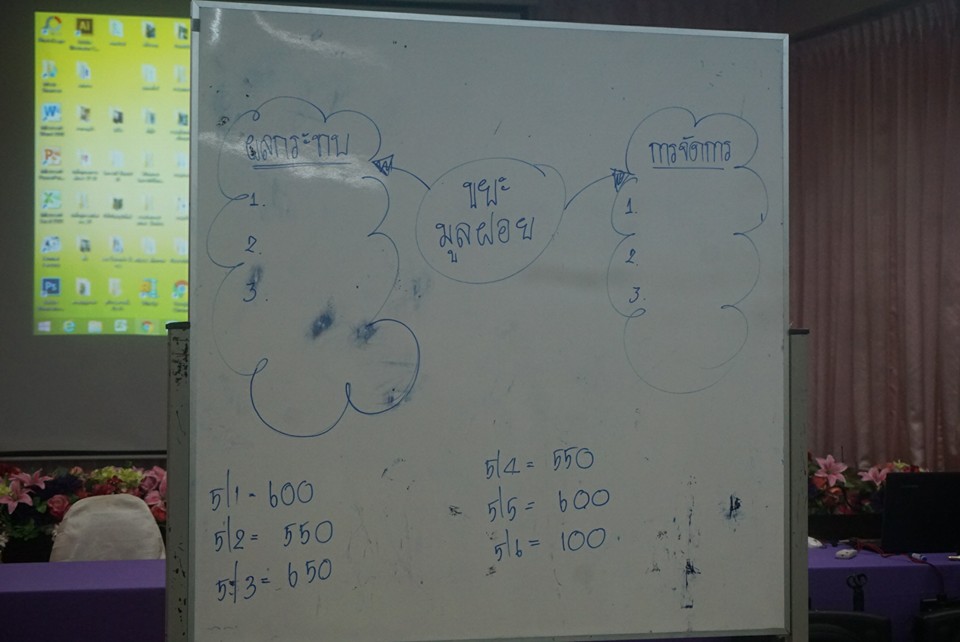 ผลกระทบ
1.
2.
3.
ขยะ
มูลฝอย
การจัดการ
1.
2.
3.
5/1 = 600
5/2 = 550
5/3 = 650
5/4 = 550
5/5 = 600
5/6 = 100